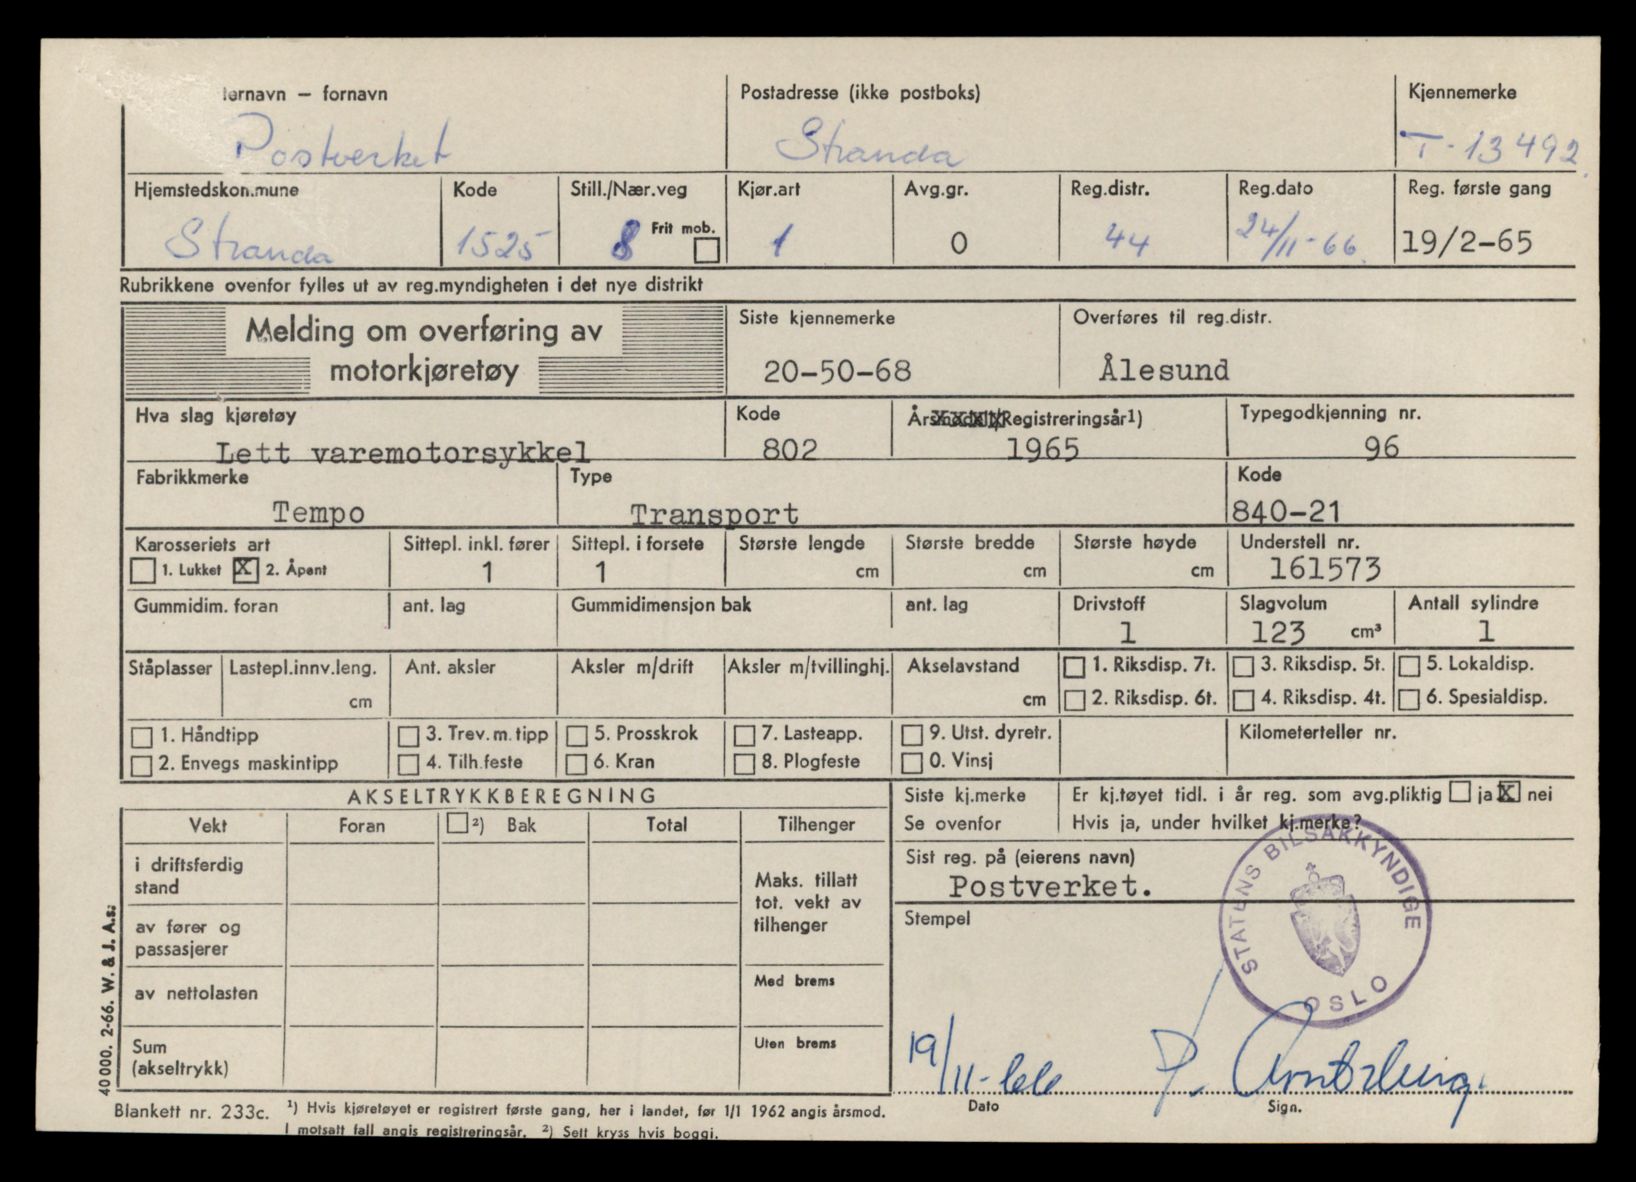 ternavn – fornavn Postadresse (ikke postboks) Kjennemerke
Postverket Stranda T-13492
Hjemstedskommune Kode Still./Nær.veg Kjør.art Avg.gr. Reg.distr. Reg.dato Reg. første gang
Stranda 1525 8 Frit mob. 1 0 44 24/11-66. 19/2-65
Rubrikkene ovenfor fylles ut av reg.myndigheten i det nye distrikt
Melding om overføring av Siste kjennemerke Overføres til reg.distr.
motorkjøretøy 20-50-68 Ålesund
Hva slag kjøretøy Kode Årsmodell/Registreringsår1) Typegodkjenning nr.
Lett varemotorsykkel 802 1965 96
Fabrikkmerke Type Kode
Tempo Transport 840-21
Karosseriets art Sittepl. inkl. fører Sittepl. i forsete Største lengde Største bredde Største høyde Understell nr.
1. Lukket X 2. Åpent 1 1 cm cm cm 161573
Gummidim. foran ant. lag Gummidimensjon bak ant. lag Drivstoff Slagvolum Antall sylindre
1 123 cm³ 1
Ståplasser Lastepl.innv.leng. Ant. aksler Aksler m/drift Aksler m/tvillinghj. Akselavstand 1. Riksdisp. 7t. 3. Riksdisp. 5t. 5. Lokaldisp.
cm cm 2. Riksdisp. 6t. 4. Riksdisp. 4t. 6. Spesialdisp.
1. Håndtipp 3. Trev.m.tipp 5. Prosskrok 7. Lasteapp. 9. Utst. dyretr. Kilometerteller nr.
2. Envegs maskintipp 4. Tilh.feste 6. Kran 8. Plogfeste 0. Vinsj
AKSELTRYKKBEREGNING Siste kj.merke Er kj.tøyet tidl. i år reg. som avg.pliktig ja X nei
Vekt Foran ²) Bak Total Tilhenger Se ovenfor Hvis ja, under hvilket kj.merke?
i driftsferdig stand Maks. tillatt tot. vekt av tilhenger Sist reg. på (eierens navn)
Postverket.
av fører og passasjerer Stempel
STATENS BILSAKKYNDIGE OSLO
av nettolasten Med brems
Sum (akseltrykk) Uten brems
19/11-66 P.
Dato Sign.
40000. 2-66. W. & J. A.s.
Blankett nr. 233c. ¹) Hvis kjøretøyet er registrert første gang, her i landet, før 1/1 1962 angis årsmod.
I motsatt fall angis registreringsår. ²) Sett kryss hvis boggi.